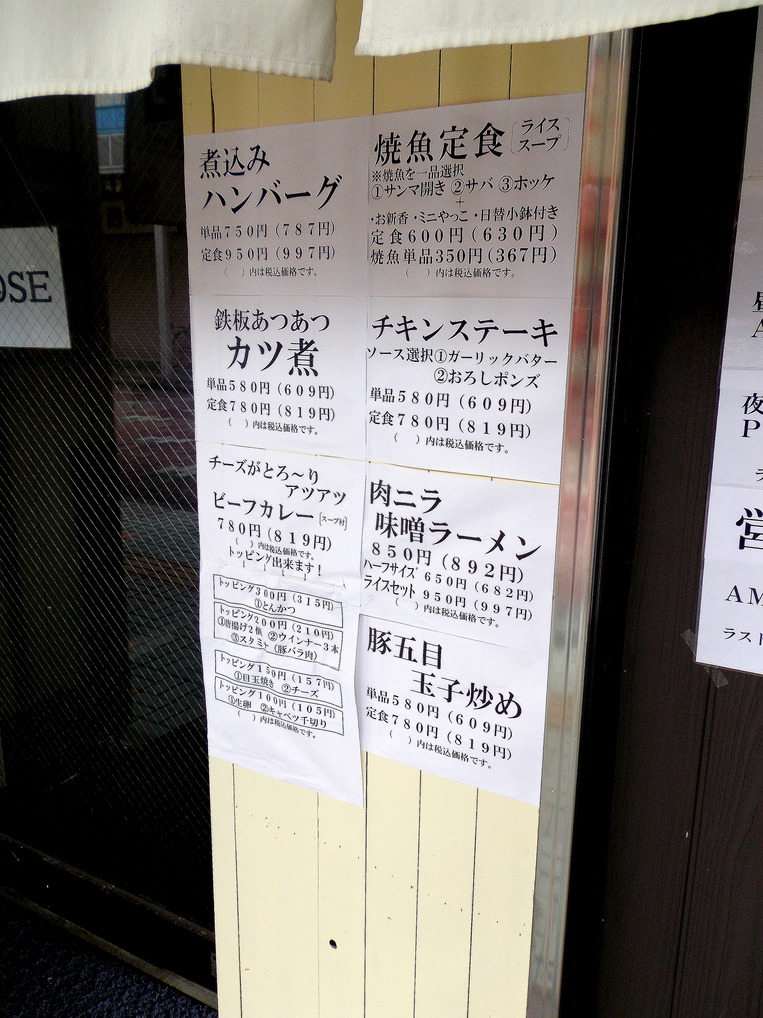 煮込み
ハンバーグ
単品750円(787円)
定食950円(997円)
( )内は税込価格です。
焼魚定食〔ライス
スープ〕
※焼魚を一品選択
①サンマ開き ②サバ ③ホッケ
+
・お新香・ミニやっこ・日替小鉢付き
定食600円(630円)
焼魚単品350円(367円)
( )内は税込価格です。
鉄板あつあつ
カツ煮
単品580円(609円)
定食780円(819円)
( )内は税込価格です。
チキンステーキ
ソース選択①ガーリックバター
②おろしポンズ
単品580円(609円)
定食780円(819円)
( )内は税込価格です。
チーズがとろ～り
アツアツ
ビーフカレー〔スープ付〕
780円(819円)
( )内は税込価格です。
トッピング出来ます!
トッピング300円(315円)
①とんかつ
トッピング200円(210円)
①唐揚げ2個 ②ウインナー3本
③スタミナ(豚バラ肉)
トッピング150円(157円)
①目玉焼き ②チーズ
トッピング100円(105円)
①生卵 ②キャベツ千切り
( )内は税込価格です。
肉ニラ
味噌ラーメン
850円(892円)
ハーフサイズ 650円(682円)
ライスセット 950円(997円)
( )内は税込価格です。
豚五目
玉子炒め
単品580円(609円)
定食780円(819円)
( )内は税込価格です。
OSE
昼
A
夜
P
ラ
営
AM
ラスト